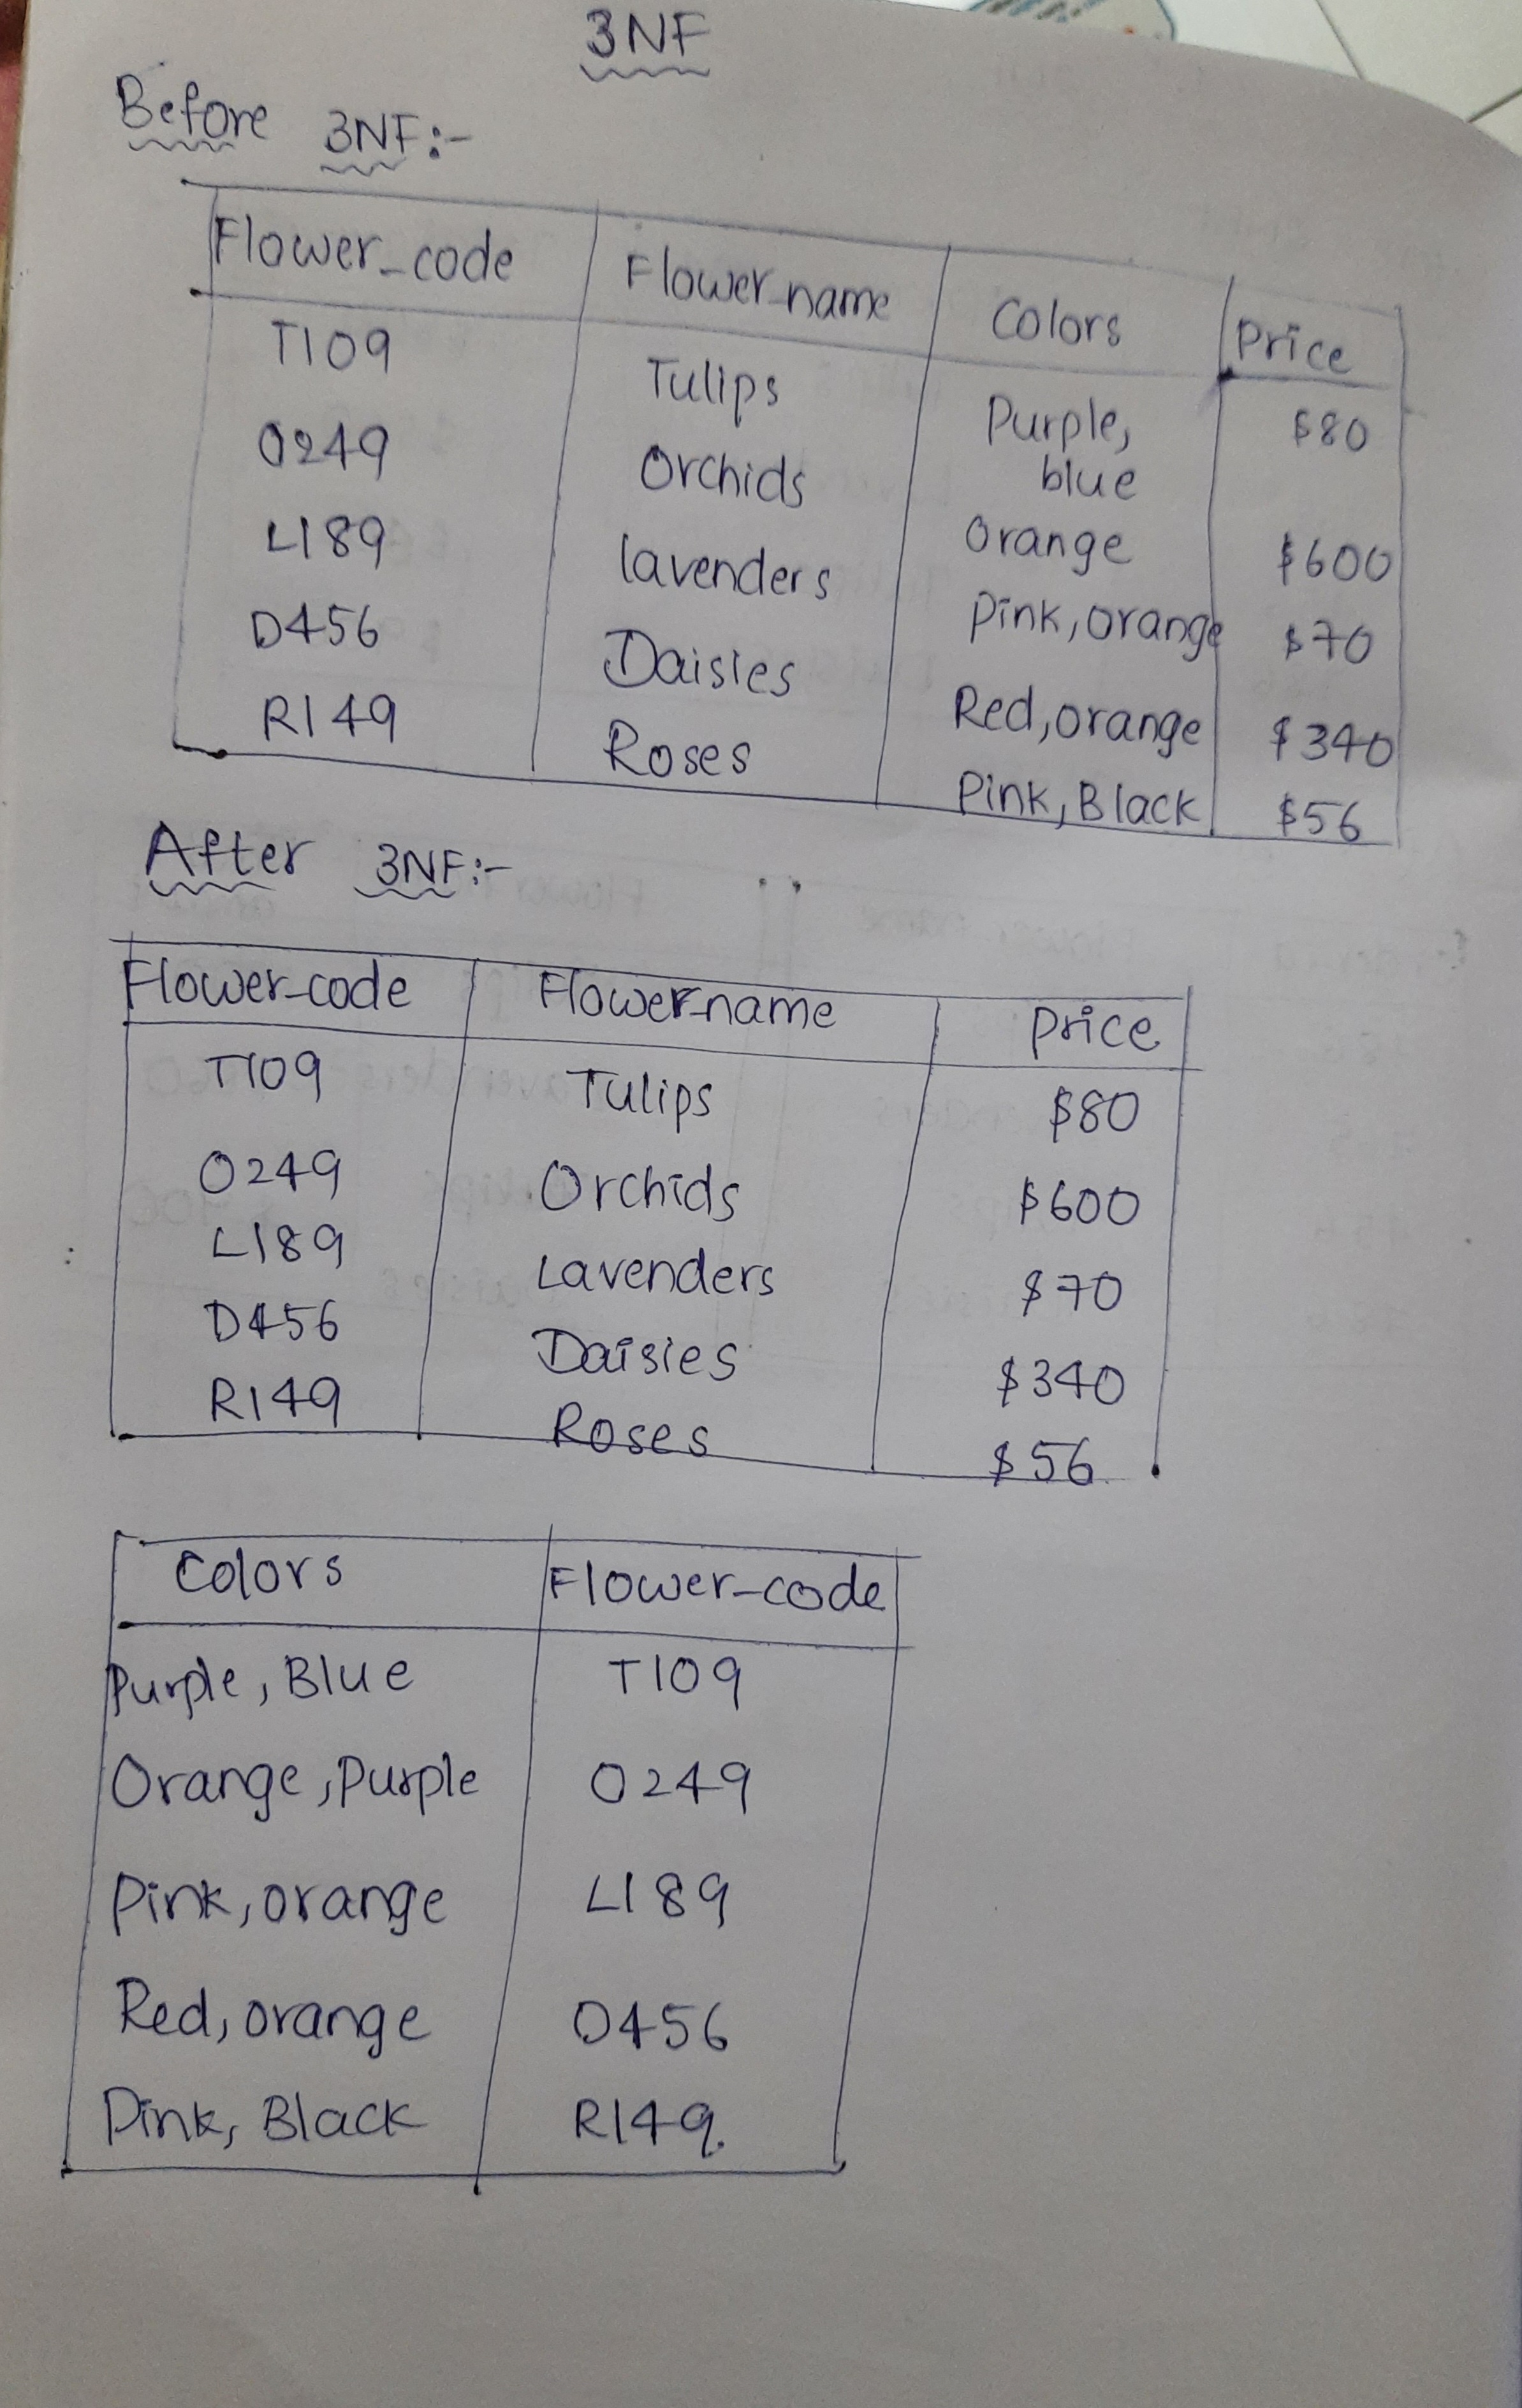 3NF
Before 3NF:-
Flower_code Flower_name Colors Price
T109 Tulips Purple, $80
blue
O249 Orchids Orange $600
L189 lavenders Pink, orange $70
D456 Daisies Red, orange $340
R149 Roses Pink, Black $56
After 3NF:-
Flower_code Flower_name Price
T109 Tulips $80
O249 Orchids $600
L189 Lavenders $70
D456 Daisies $340
R149 Roses $56
Colors Flower_code
Purple, Blue T109
Orange, Purple O249
Pink, orange L189
Red, orange D456
Pink, Black R149.